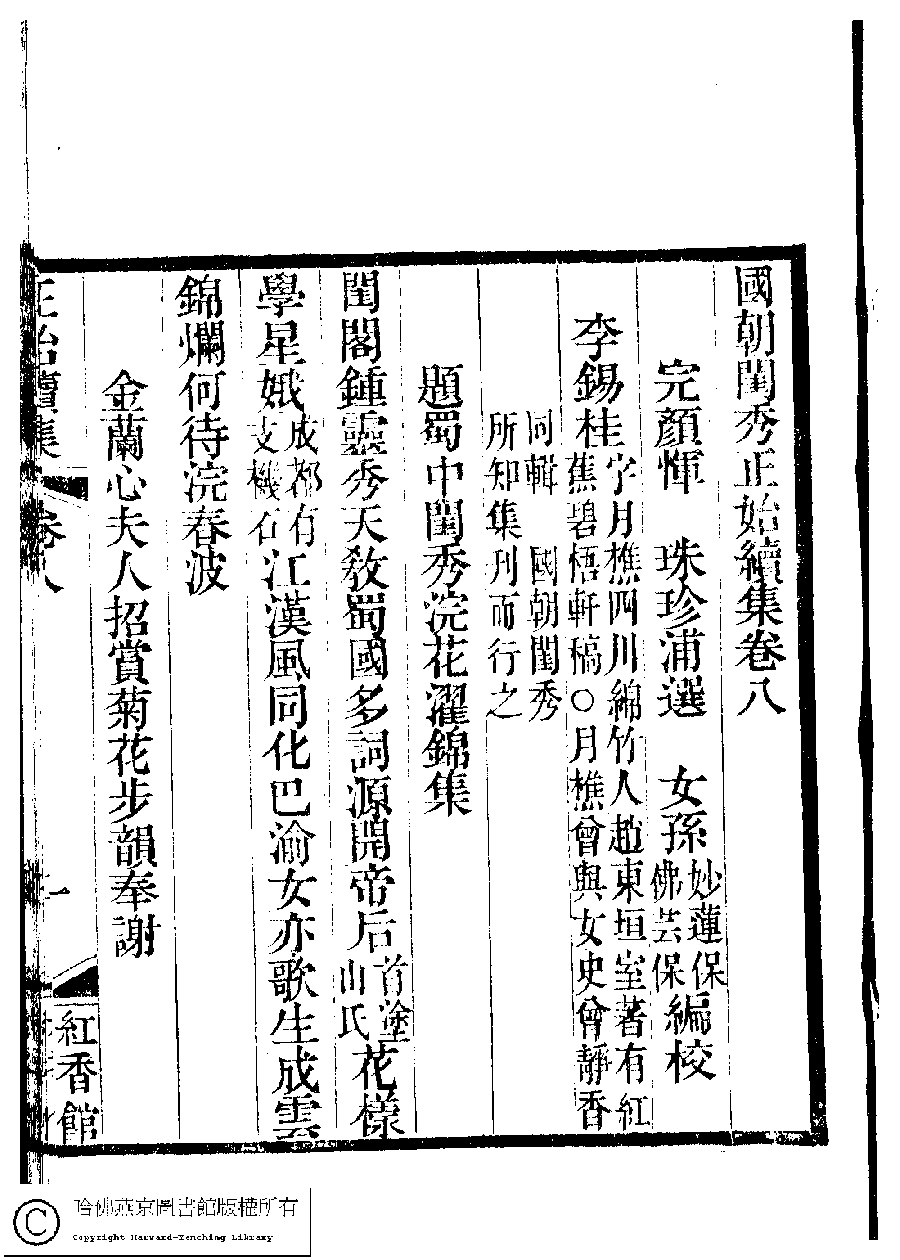 國朝閨秀正始續集卷八
完顏惲 珠珍浦選 女孫妙蓮保佛芸保編校
李錫桂字月樵四川綿竹人趙東垣室著有紅
蕉碧梧軒稿○月樵曾與女史曾靜香
同輯 國朝閨秀
所知集刊而行之
題蜀中閨秀浣花濯錦集
閨閣鍾靈秀天教蜀國多詞源開帝后首塗山氏花樣
學星娥成都有支機石江漢風同化巴渝女亦歌生成雲
錦爛何待浣春波
金蘭心夫人招賞菊花步韻奉謝
正始續集 卷八 一 紅香館
哈佛燕京圖書館版權所有
Copyright Harvard-Yenching Library